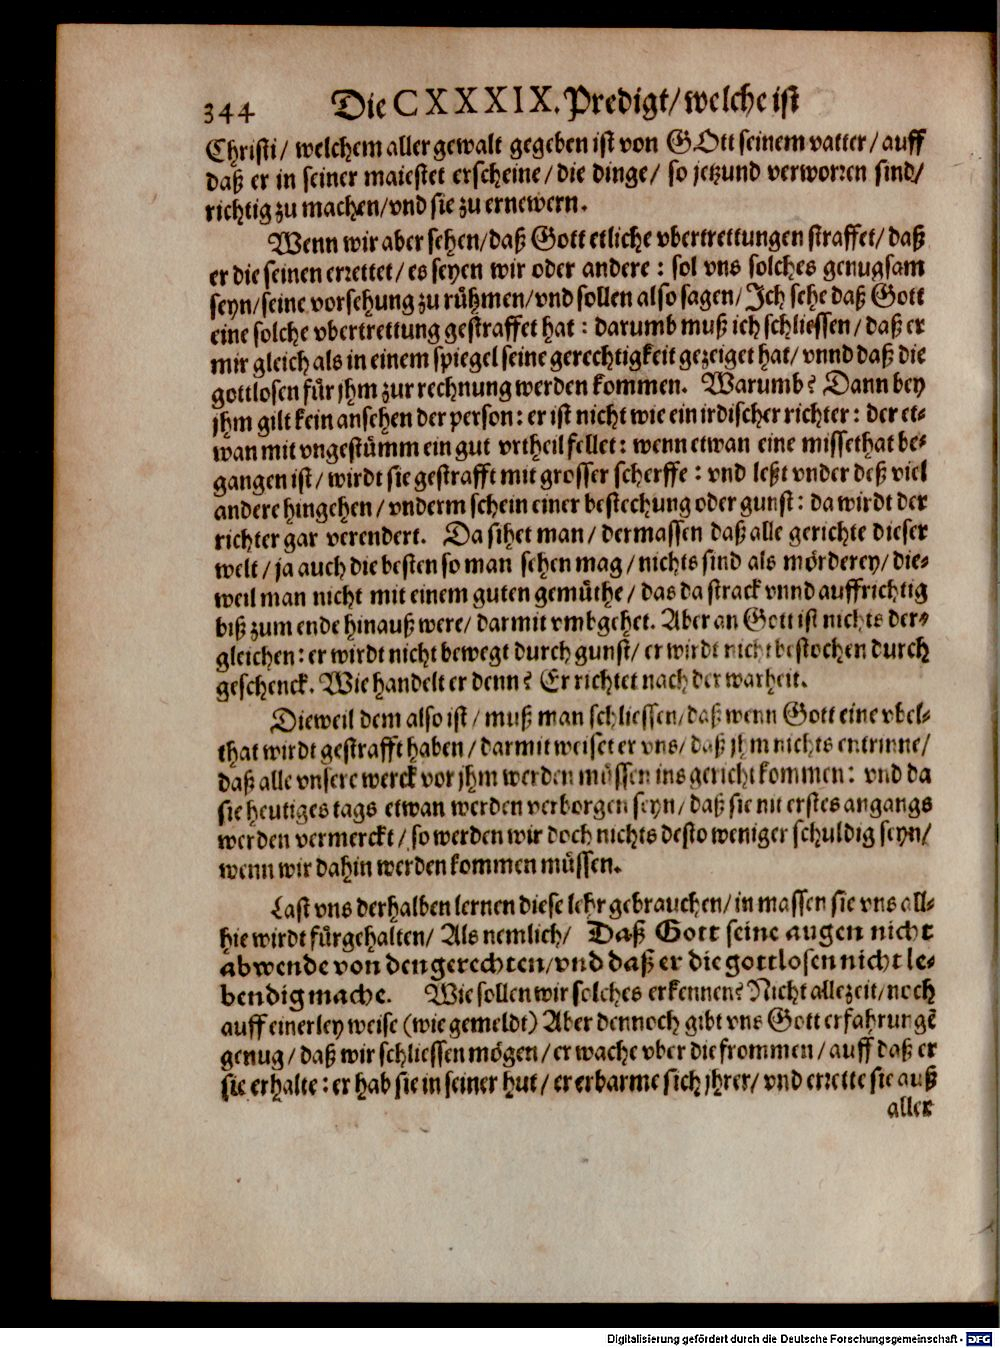 344 Die CXXXIX. Predigt/ welche ist
Christi/ welchem aller gewalt gegeben ist von GOtt seinem vatter/ auff
daß er in seiner maiestet erscheine/ die dinge/ so jetzund verworren sind/
richtig zu machen/ vnd sie zu ernewern.
Wenn wir aber sehen/ daß Gott etliche vbertrettungen straffet/ daß
er die seinen errettet/ es seyen wir oder andere : sol vns solches genugsam
seyn/ seine vorsehung zu rühmen/ vnd sollen also sagen/ Ich sehe daß Gott
eine solche vbertrettung gestraffet hat : darumb muß ich schliessen/ daß er
mir gleich als in einem spiegel seine gerechtigkeit gezeiget hat/ vnnd daß die
gottlosen für jhm zur rechnung werden kommen. Warumb? Dann bey
jhm gilt kein ansehen der person: er ist nicht wie ein irdischer richter: der et-
wan mit vngestümm ein gut vrtheil fellet: wenn etwan eine missethat be-
gangen ist/ wirdt sie gestrafft mit grosser scherffe : vnd leßt vnder deß viel
andere hingehen/ vnderm schein einer bestechung oder gunst: da wirdt der
richter gar verendert. Da sihet man/ dermassen daß alle gerichte dieser
welt/ ja auch die besten so man sehen mag/ nichts sind als mörderey/ die-
weil man nicht mit einem guten gemüthe/ das da strack vnnd auffrichtig
biß zum ende hinauß were/ darmit vmbgehet. Aber an Gott ist nichts der-
gleichen: er wirdt nicht bewegt durch gunst/ er wirdt nicht bestochen durch
geschenck. Wie handelt er denn? Er richtet nach der warheit.
Dieweil dem also ist/ muß man schliessen/ daß wenn Gott eine vbel-
that wirdt gestrafft haben/ darmit weiset er vns/ daß jhm nichts entrinne/
daß alle vnsere werck vor jhm werden müssen ins gericht kommen: vnd da
sie heutiges tags etwan werden verborgen seyn/ daß sie nit erstes angangs
werden vermerckt/ so werden wir doch nichts desto weniger schuldig seyn/
wenn wir dahin werden kommen müssen.
Last vns derhalben lernen diese lehr gebrauchen/ in massen sie vns all-
hie wirdt fürgehalten/ Als nemlich/ Daß Gott seine augen nicht
abwende von den gerechten/ vnd daß er die gottlosen nicht le-
bendig mache. Wie sollen wir solches erkennen? Nicht allezeit/ noch
auff einerley weise (wie gemeldt) Aber dennoch gibt vns Gott erfahrungē
genug/ daß wir schliessen mögen/ er wache vber die frommen/ auff daß er
sie erhalte: er hab sie in seiner hut/ er erbarme sich jhrer/ vnd errette sie auß
aller
Digitalisierung gefördert durch die Deutsche Forschungsgemeinschaft - DFG